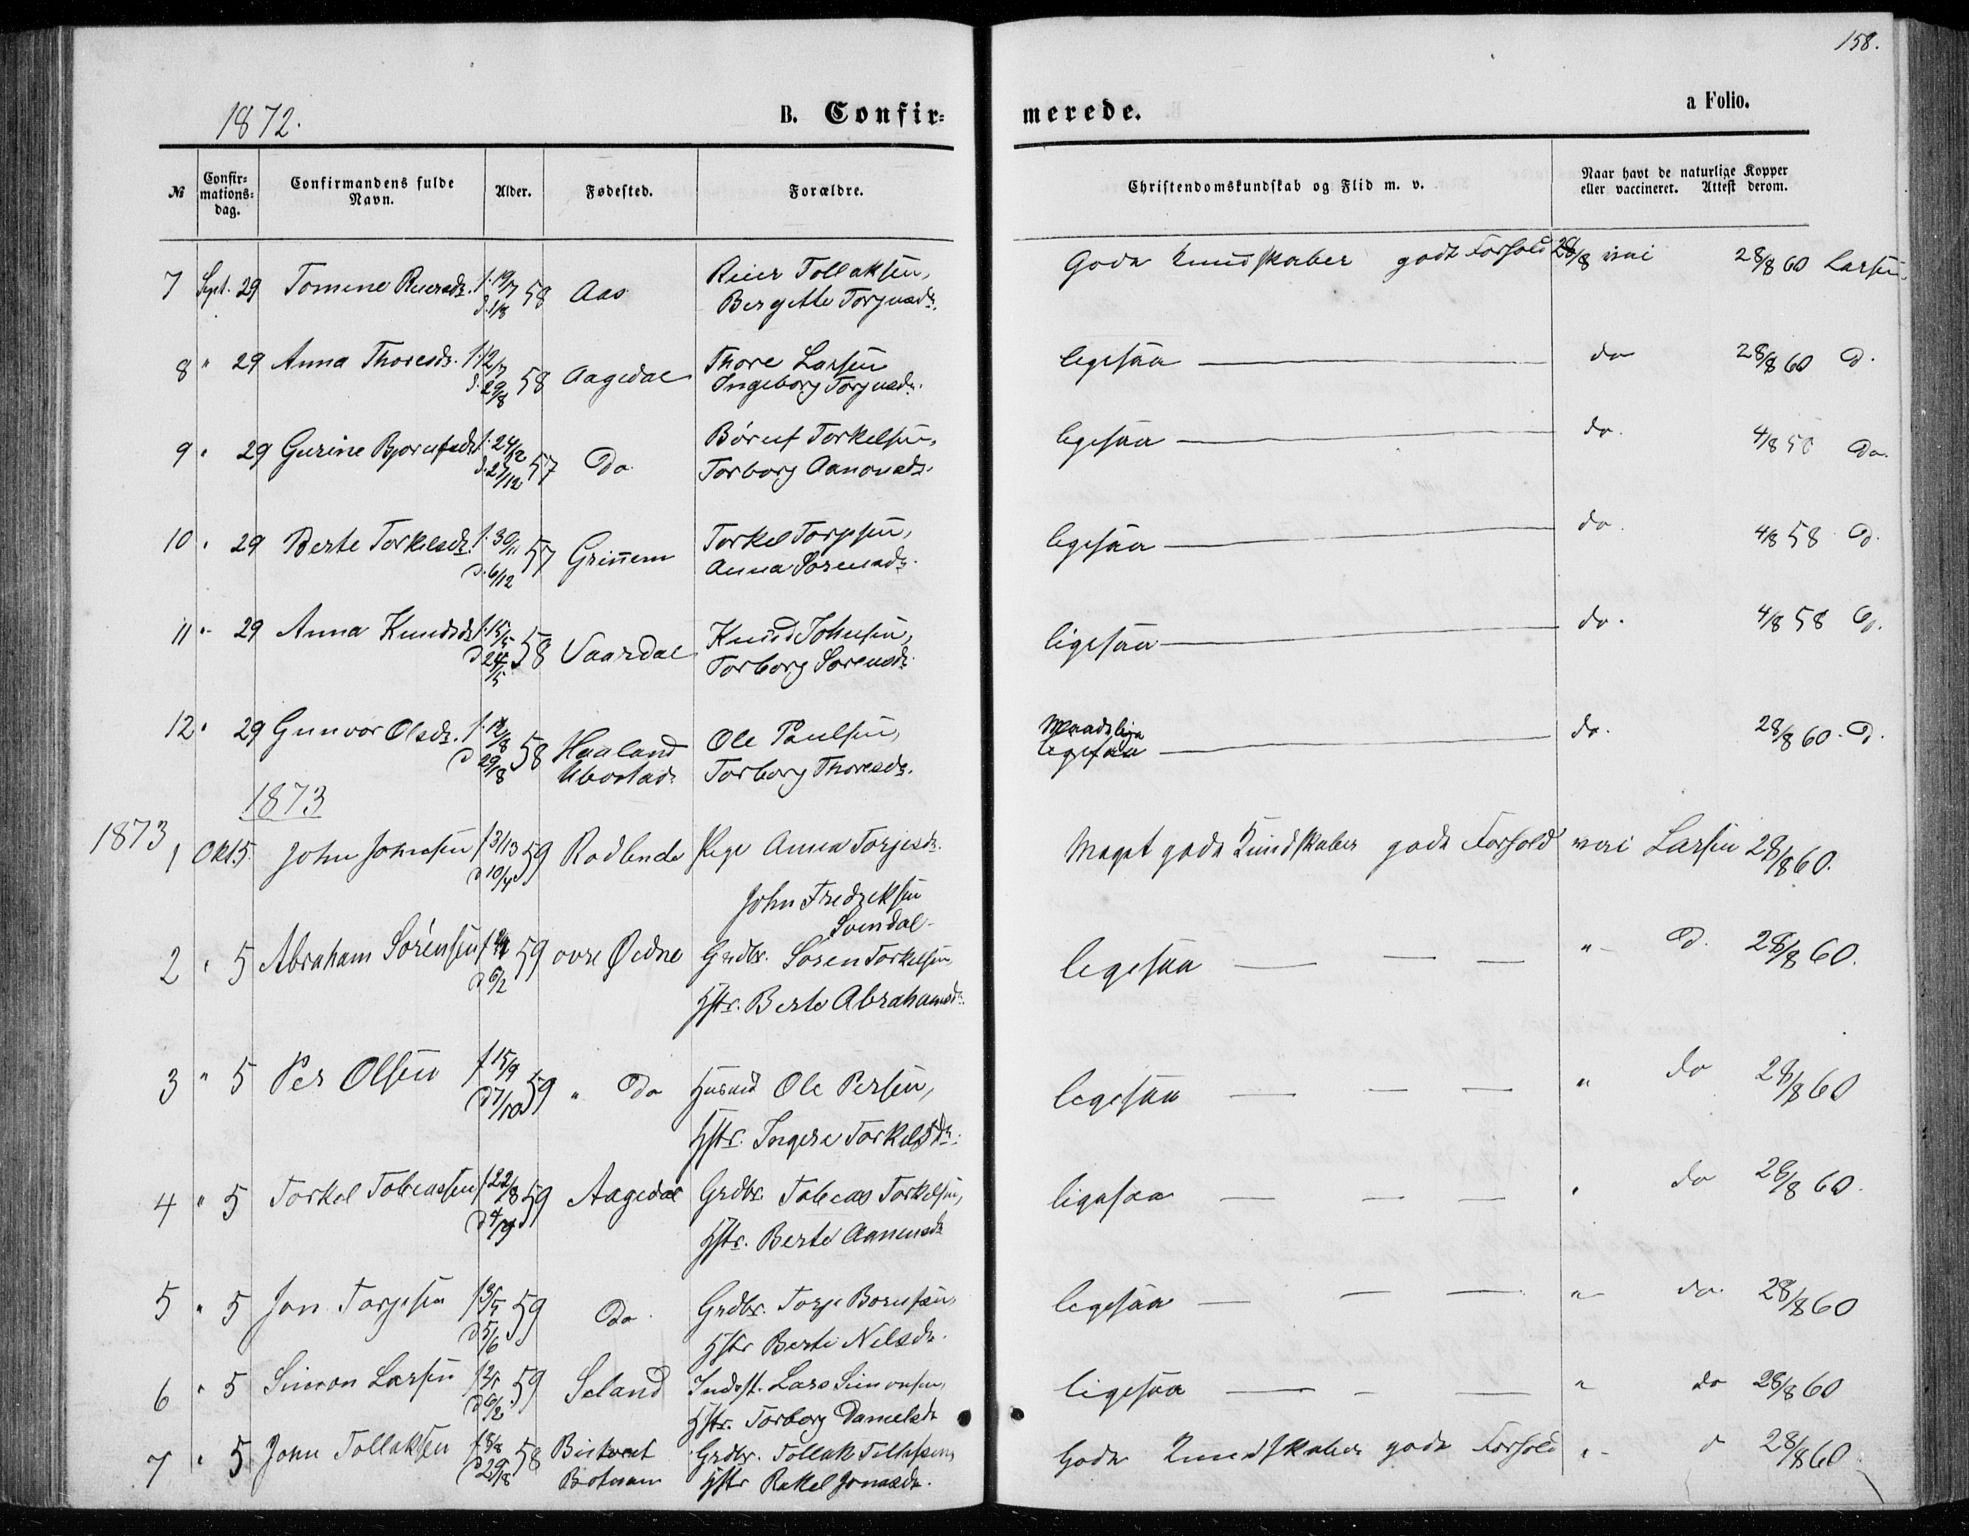 158.
1872.
B. Confir-
merede.
a Folio.
№
Confir-
mations-
dag.
Confirmandens fulde
Navn.
Alder.
Fødested.
Forældre.
Christendomskundskab og Flid m. v.
Naar havt de naturlige Kopper
eller vaccineret. Attest derom.
7 Sept. 29 Tomine Reiersdr. f. 19/7 d. 1/8 58 Aas Reier Tollaksen,
Bergitte Torjusdr.
Gode Kundskaber godt Forhold 28/8 60 Larsen
8 " 29 Anna Thoresdr. f. 12/7 d. 29/8 58 Aagedal Thore Larsen
Ingeborg Torjusdr.
ligesaa do 28/8 60 D.
9 " 29 Gurine Bjorufsdr. f. 24/12 d. 27/12 57 Do Børuf Torkelsen,
Torborg Aanonsdr.
ligesaa do. 4/8 58 Do.
10 " 29 Berte Torkelsdr. f. 30/11 d. 6/12 57 Grinem Torkel Torjesen,
Anna Sorensdr.
ligesaa do. 4/8 58 D.
11 " 29 Anna Knudsdr. f. 15/5 d. 24/5 58 Vaardal Knud Johnsen,
Torborg Sorensdr.
ligesaa do. 4/8 58 D.
12 " 29 Gunvor Olsdr. f. 12/8 d. 29/8 58 Haaland
Ubostad Ole Paulsen,
Torborg Thoresdr.
Maadelige
ligesaa do. 28/8 60. D.
1873
1873
1 Okt. 5 John Johnsen f 31/3 d 10/4 59 Rodlende Pige Anna Torjesdr.
John Fredriksen
Svindal
Meget gode Kundskaber godt Forhold Larsen 28/8 60.
2 " 5 Abraham Sørensen d 6/2 59 ovre Øidne Grdbr. Søren Torkelsen
Hstr. Berte Abrahamsdr.
ligesaa " D. 28/8 60.
3 " 5 Per Olsen f 15/9 d 7/10 59 " Do Husmd Ole Persen,
Hstr. Ingere Torkelsdr.
ligesaa " do 28/8 60
4 " 5 Torkel Tobiassen f 22/8 d 4/9 59 Aagedal Grdbr. Tobias Torkelsen,
Hstr. Berte Aanensdr
ligesaa " do 28/8 60.
5 " 5 Jon Torjesen d 5/6 59 Do. Grdbr. Torje Borufsen,
Hstr Berte Nelsdr.
ligesaa " do. 28/8 60
6 " 5 Simon Larsen d 6/2 59 Seland Inderst. Lars Simonsen,
Hstr. Torborg Danielsdr
ligesaa " do 28/8 60
7 " 5 John Tollaksen f 8/8 d 29/8 58 Bisterveit
Grdbr. Tollak Tollefsen,
Hstr Rakel Jonasdr.
Gode Kundskaber godt Forhold " d 28/8 60.